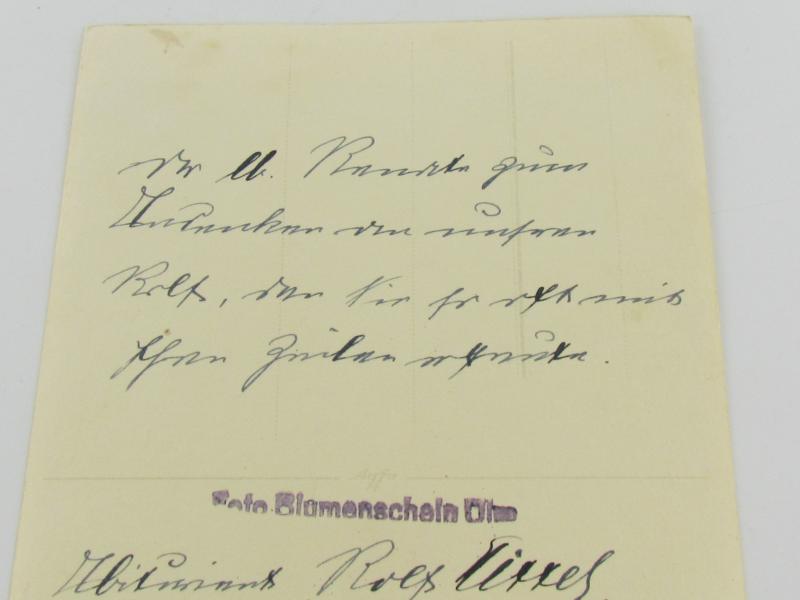 Der lb. Renate zum
Andenken an unseren
Rolf, den sie so oft mit
Ihren Zeilen erfreute.
Foto Blumenschein Ulm
Abiturient Rolf